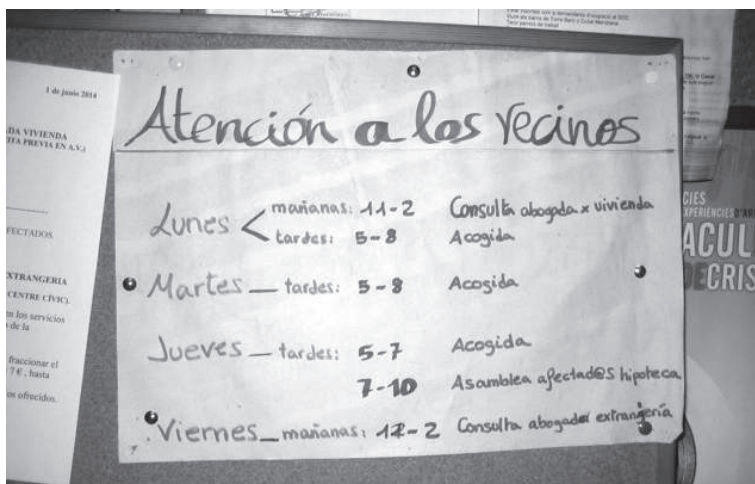 Vium als barris de Torre Baró y Ciutat Meridiana
Tenir permís de treball
1 de junio 2014
DA VIVIENDA
ITA PREVIA EN A.V.)
FECTADOS
XTRANGERIA
CENTRE CÍVIC)
en los servicios
o de la
fraccionar el
7 €, hasta
os ofrecidos.
Atención a los vecinos
Lunes < mañanas: 11-2 Consulta abogada x vivienda
tardes: 5-8 Acogida
Martes — tardes: 5-8 Acogida
Jueves — tardes: 5-7 Acogida
7-10 Asamblea afectad@s hipoteca
Viernes — mañanas: 12-2 Consulta abogada extrangería
CIES
XPERIENCIES
ACUL
DECRIS